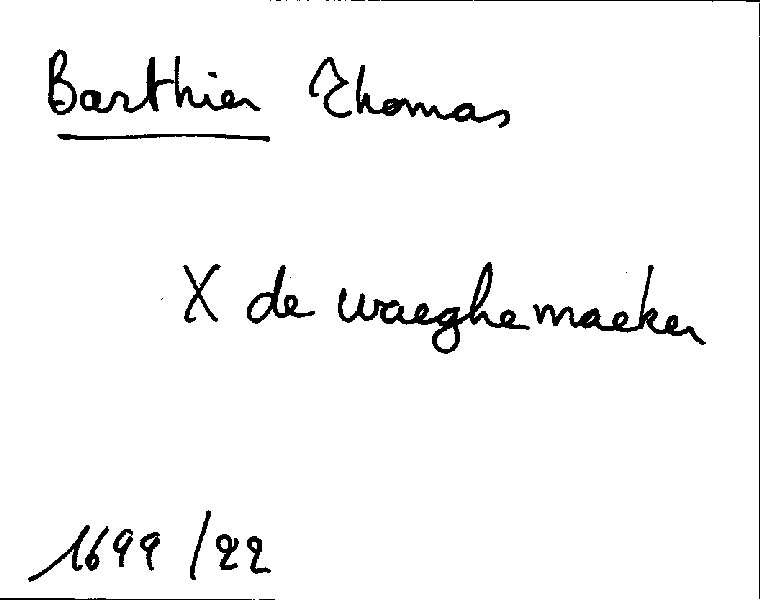 Barthier Thomas
X de waeghemaeker
1699 /22